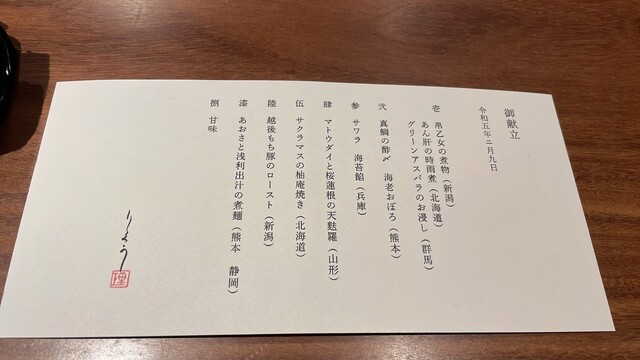 御献立
令和五年二月九日
壱 帛乙女の煮物（新潟）
あん肝の時雨煮（北海道）
グリーンアスパラのお浸し（群馬）
弐 真鯛の酢〆 海老おぼろ（熊本）
参 サワラ 海苔餡（兵庫）
肆 マトウダイと桜蓮根の天麩羅（山形）
伍 サクラマスの柚庵焼き（北海道）
陸 越後もち豚のロースト（新潟）
漆 あおさと浅利出汁の煮麺（熊本 静岡）
捌 甘味
りさう
理